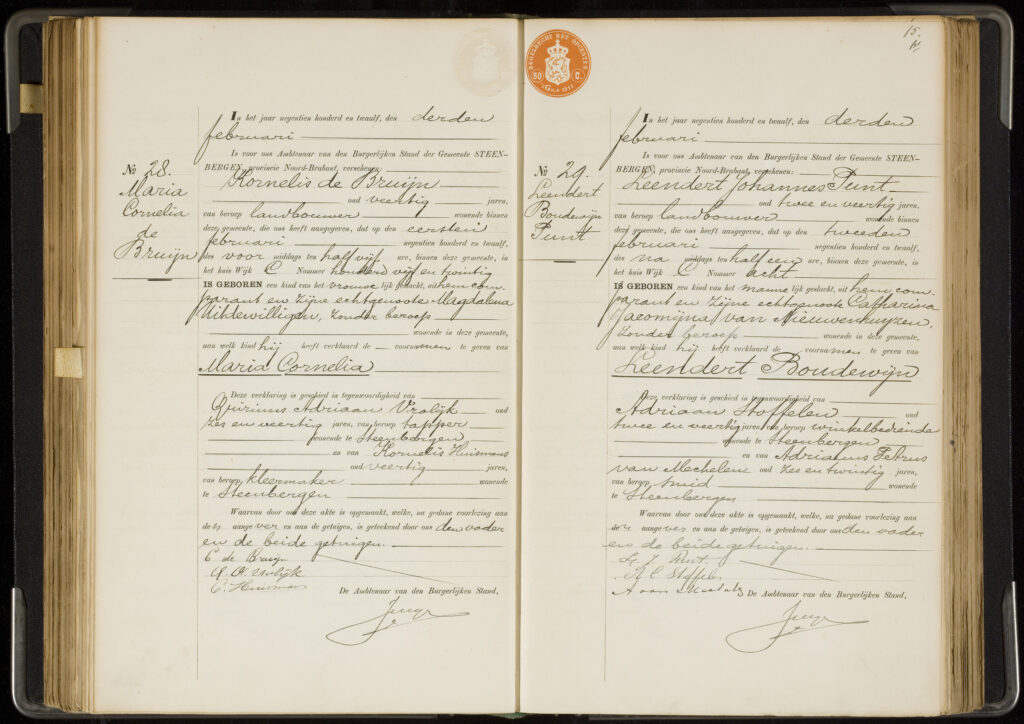 In het jaar negentien honderd en twaalf, den derden
februari
Is voor ons Ambtenaar van den Burgerlijken Stand der Gemeente STEEN-
BERGEN, provincie Noord-Brabant, verschenen:
№ 28.
Maria
Cornelia
de
Bruijn
Kornelis de Bruijn
oud veertig jaren,
van beroep landbouwer wonende binnen
deze gemeente, die ons heeft aangegeven, dat op den eersten
februari negentien honderd en twaalf,
des voor middags ten half vijf ure, binnen deze gemeente, in
het huis Wijk C Nommer honderd vijf en twintig
IS GEBOREN een kind van het vrouwe lijk geslacht, uit hem com-
parant en zijne echtgenoote Magdalena
Uitdewilligen, zonder beroep
wonende in deze gemeente,
aan welk kind hij heeft verklaard de voornamen te geven van
Maria Cornelia
Deze verklaring is geschied in tegenwoordigheid van
Quirinus Adriaan Vrolijk oud
zes en veertig jaren, van beroep tapper
wonende te Steenbergen
en van Kornelis Huismans
oud veertig jaren,
van beroep kleermaker wonende
te Steenbergen
Waarvan door ons deze akte is opgemaakt, welke, na gedane voorlezing aan
den aangever en aan de getuigen, is geteekend door ons den vader
en de beide getuigen.
C de Bruijn
Q. A. Vrolijk
C. Huismans
De Ambtenaar van den Burgerlijken Stand,
ZEGELRECHT MET OPCENTEN
50 C.
15.
In het jaar negentien honderd en twaalf, den derden
februari
Is voor ons Ambtenaar van den Burgerlijken Stand der Gemeente STEEN-
BERGEN, provincie Noord-Brabant, verschenen:
№ 29.
Leendert
Boudewijn
Punt
Leendert Johannes Punt
oud twee en veertig jaren,
van beroep landbouwer wonende binnen
deze gemeente, die ons heeft aangegeven, dat op den tweeden
februari negentien honderd en twaalf,
des na middags ten half een ure, binnen deze gemeente, in
het huis Wijk C Nommer acht
IS GEBOREN een kind van het manne lijk geslacht, uit hem com-
parant en zijne echtgenoote Catharina
Jacomijna van Nieuwenhuijzen,
zonder beroep wonende in deze gemeente,
aan welk kind hij heeft verklaard de voornamen te geven van
Leendert Boudewijn
Deze verklaring is geschied in tegenwoordigheid van
Adriaan Stoffelen oud
twee en veertig jaren, van beroep winkelbediende
wonende te Steenbergen
en van Adrianus Petrus
van Mechelen oud zes en twintig jaren,
van beroep smid wonende
te Steenbergen
Waarvan door ons deze akte is opgemaakt, welke, na gedane voorlezing aan
den aangever en aan de getuigen, is geteekend door ons den vader
en de beide getuigen.
L. J. Punt.
De Ambtenaar van den Burgerlijken Stand,